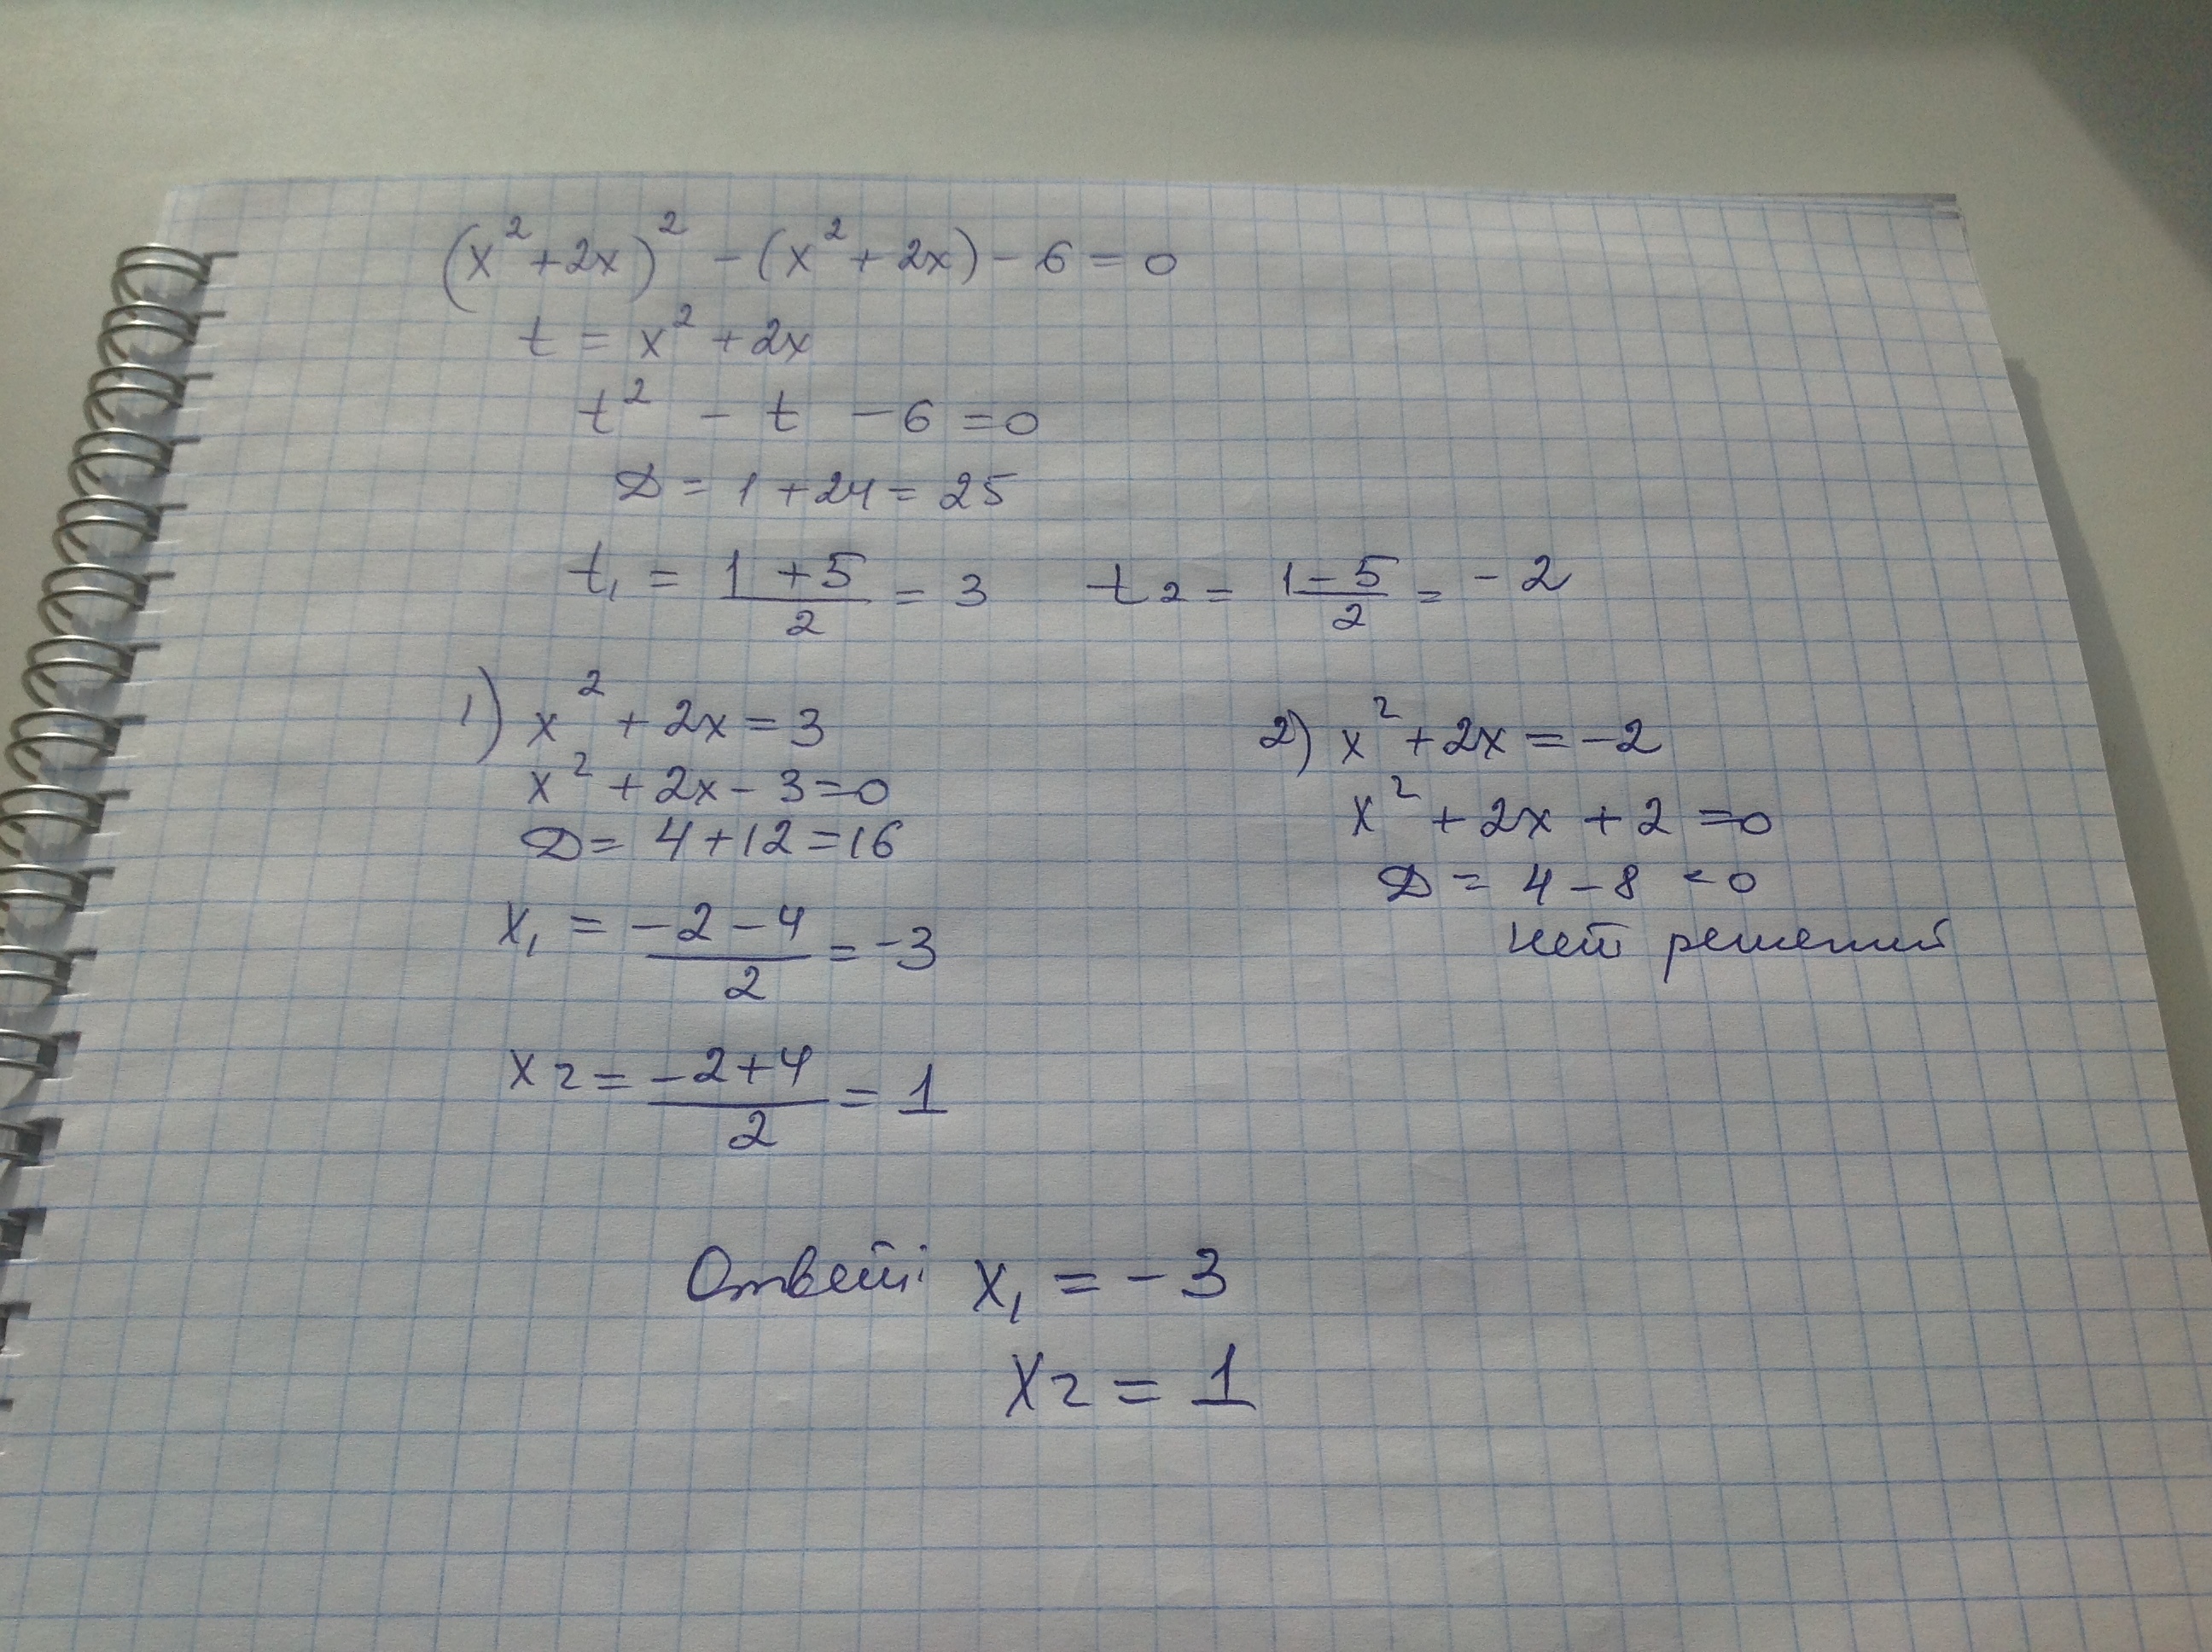 (x² + 2x)² - (x² + 2x) - 6 = 0
t = x² + 2x
t² - t - 6 = 0
D = 1 + 24 = 25
t₁ = (1 + 5)/2 = 3 t₂ = (1 - 5)/2 = -2
1) x² + 2x = 3
x² + 2x - 3 = 0
D = 4 + 12 = 16
x₁ = (-2 - 4)/2 = -3
x₂ = (-2 + 4)/2 = 1
2) x² + 2x = -2
x² + 2x + 2 = 0
D = 4 - 8 < 0
нет решений
Ответ: x₁ = -3
x₂ = 1